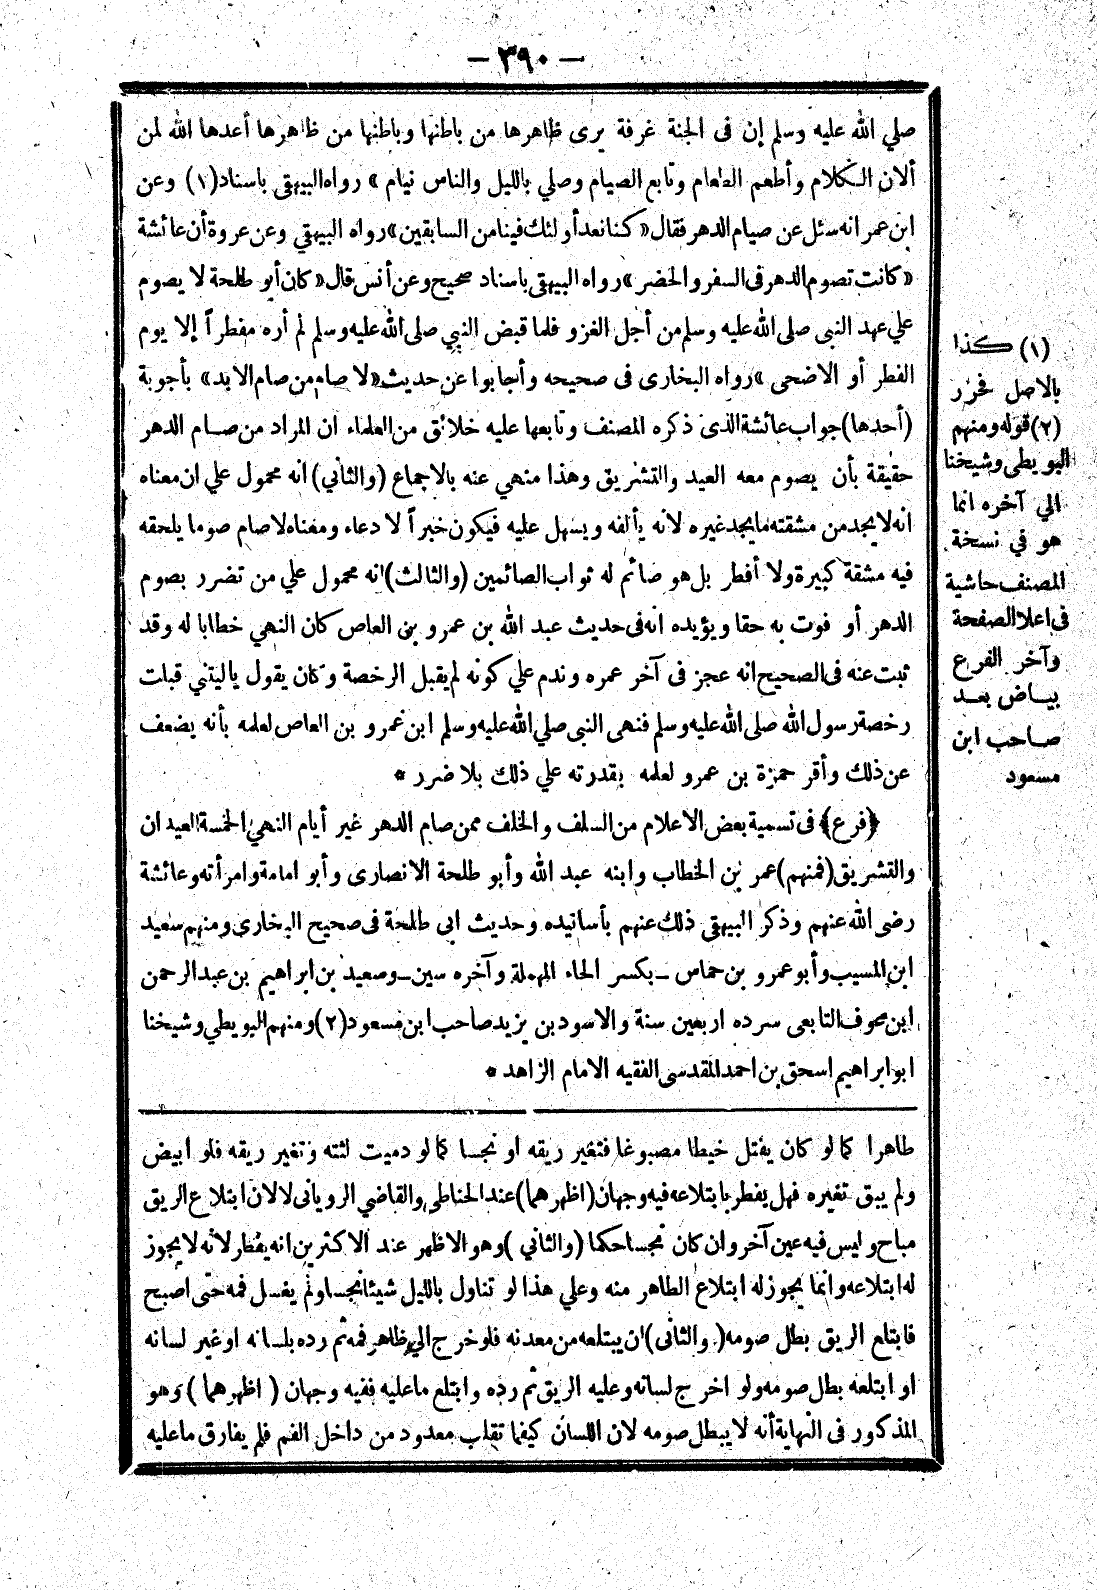 — ٣٩٠ —
صلي الله عليه وسلم إن فى الجنة غرفة يرى ظاهرها من باطنها وباطنها من ظاهرها أعدها الله لمن
ألان الكلام وأطعم الطعام وتابع الصيام وصلي بالليل والناس نيام » رواه البيهقى باسناد (١) وعن
ابن عمر انه سئل عن صيام الدهر فقال « كنا نعد أولئك فينا من السابقين » رواه البيهقي وعن عروة أن عائشة
« كانت تصوم الدهر فى السفر والحضر » رواه البيهقى باسناد صحيح وعن أنس قال « كان أبو طلحة لا يصوم
علي عهد النبى صلى الله عليه وسلم من أجل الغزو فلما قبض النبي صلى الله عليه وسلم لم أره مفطراً إلا يوم
الفطر أو الاضحى » رواه البخارى فى صحيحه وأجابوا عن حديث « لا صام من صام الابد » بأجوبة
(أحدها) جواب عائشة الذى ذكره المصنف وتابعها عليه خلائق من العلماء ان المراد من صام الدهر
حقيقة بأن يصوم معه العيد والتشريق وهذا منهي عنه بالاجماع (والثاني) انه محمول علي ان معناه
انه لا يجد من مشقته ما يجد غيره لانه يألفه ويسهل عليه فيكون خبراً لا دعاء ومعناه لا صام صوما يلحقه
فيه مشقة كبيرة ولا أفطر بل هو صائم له ثواب الصائمين (والثالث) انه محمول علي من تضرر بصوم
الدهر أو فوت به حقا ويؤيده انه فى حديث عبد الله بن عمرو بن العاص كان النهي خطابا له وقد
ثبت عنه فى الصحيح انه عجز فى آخر عمره وندم علي كونه لم يقبل الرخصة وكان يقول ياليتني قبلت
رخصة رسول الله صلى الله عليه وسلم فنهى النبى صلي الله عليه وسلم ابن عمرو بن العاص لعلمه بأنه يضعف
عن ذلك وأقر حمزة بن عمرو لعلمه بقدرته علي ذلك بلا ضرر *
﴿فرع﴾ فى تسمية بعض الاعلام من السلف والخلف ممن صام الدهر غير أيام النهي الخمسة العيدان
والتشريق (فمنهم) عمر بن الخطاب وابنه عبد الله وأبو طلحة الانصارى وأبو امامة وامرأته وعائشة
رضى الله عنهم وذكر البيهقى ذلك عنهم بأسانيده وحديث ابى طلحة فى صحيح البخارى ومنهم سعيد
ابن المسيب وأبو عمرو بن حماس ــ بكسر الحاء المهملة وآخره سين ــ وسعيد بن ابراهيم بن عبد الرحمن
ابن عوف التابعى سرده اربعين سنة والاسود بن يزيد صاحب ابن مسعود (٢) ومنهم البويطي وشيخنا
ابو ابراهيم اسحق بن احمد المقدسى الفقيه الامام الزاهد *
(١) كذا
بالاصل فحرر
(٢) قوله ومنهم
البويطى وشيخنا
الي آخره انما
هو في نسخة
المصنف حاشية
فى اعلا الصفحة
وآخر الفرع
بياض بعد
صاحب ابن
مسعود
طاهرا كما لو كان يفتل خيطا مصبوغا فتغير ريقه او نجسا كما لو دميت لثته وتغير ريقه فلو ابيض
ولم يبق تغيره فهل يفطر بابتلاعه فيه وجهان (اظهرهما) عند الحناطى والقاضي الرويانى لا لان ابتلاع الريق
مباح وليس فيه عين آخر وان كان نجسا حكما (والثاني) وهو الاظهر عند الاكثرين انه يفطر لانه لا يجوز
له ابتلاعه وانما يجوز له ابتلاع الطاهر منه وعلي هذا لو تناول بالليل شيئا نجسا ولم يغسل فمه حتى اصبح
فابتلع الريق بطل صومه (والثانى) ان يبتلعه من معدنه فلو خرج الي ظاهر فمه ثم رده بلسانه او غير لسانه
او ابتلعه بطل صومه ولو اخرج لسانه وعليه الريق ثم رده وابتلع ما عليه ففيه وجهان (اظهرهما) وهو
المذكور فى النهاية أنه لا يبطل صومه لان اللسان كيفما تقلب معدود من داخل الفم فلم يفارق ما عليه